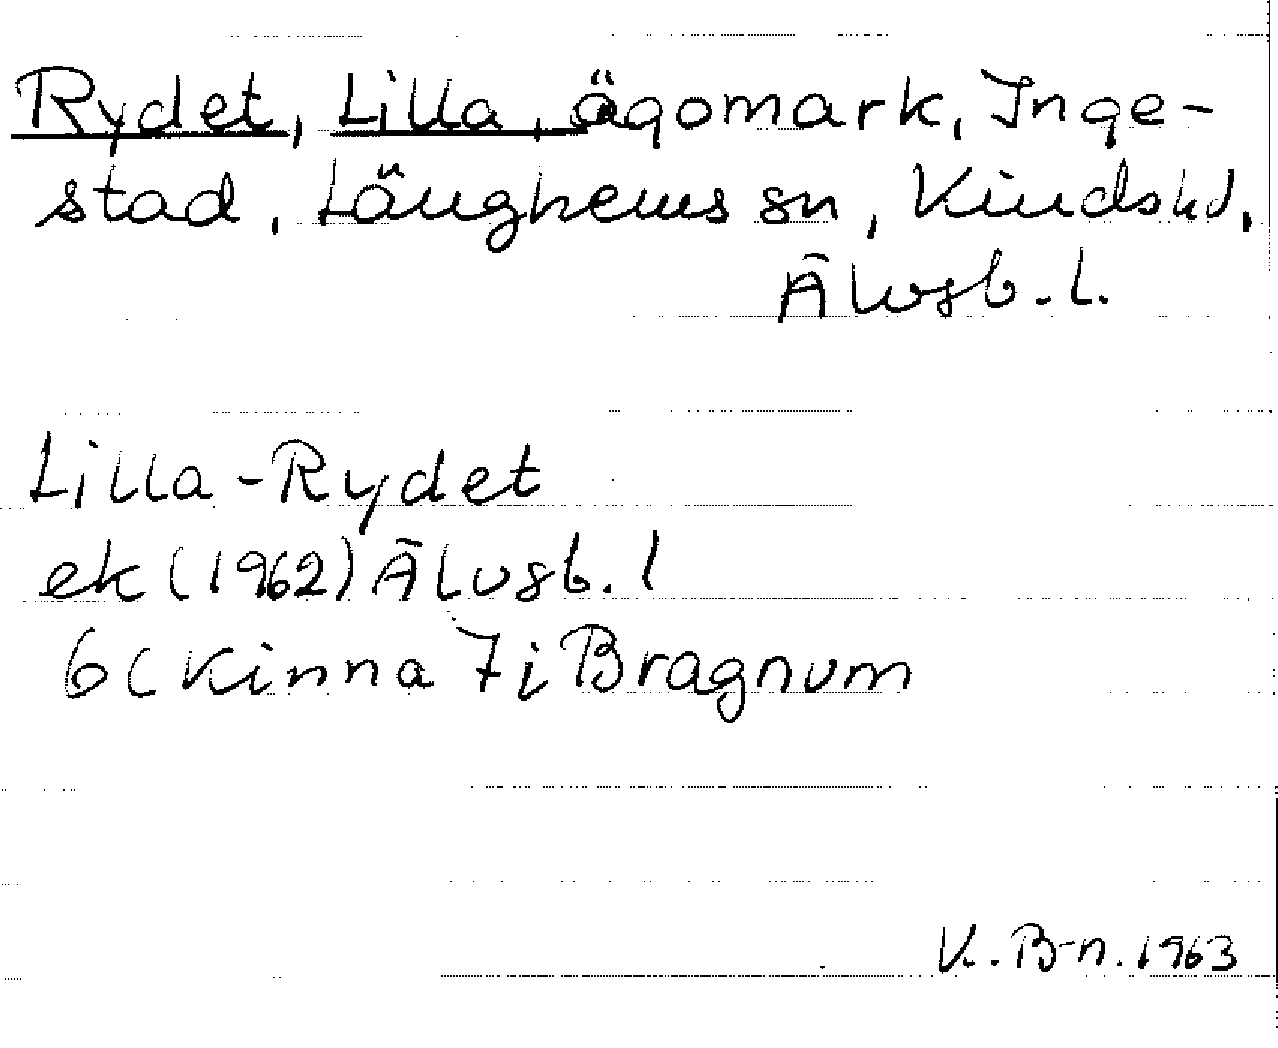 Rydet, Lilla, ägomark, Inge-
stad, Länghems sn, Kinds hd,
Älvsb. l.
Lilla-Rydet
ek (1962) Älvsb. l
6C Kinna 7i Bragnum
K. B-n. 1963